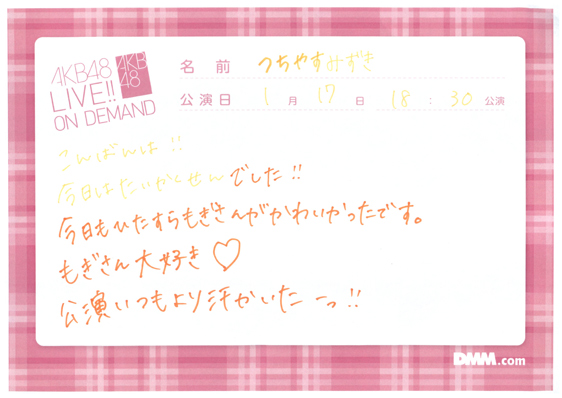 AKB48
LIVE!!
ON DEMAND
AKB
48
名前 つちやすみずき
公演日 1月17日 18:30公演
こんばんは!!
今日はたいかくせんでした!!
今日もひたすらもぎさんがかわいかったです。
もぎさん大好き♡
公演いつもより汗かいたーっ!!
DMM.com